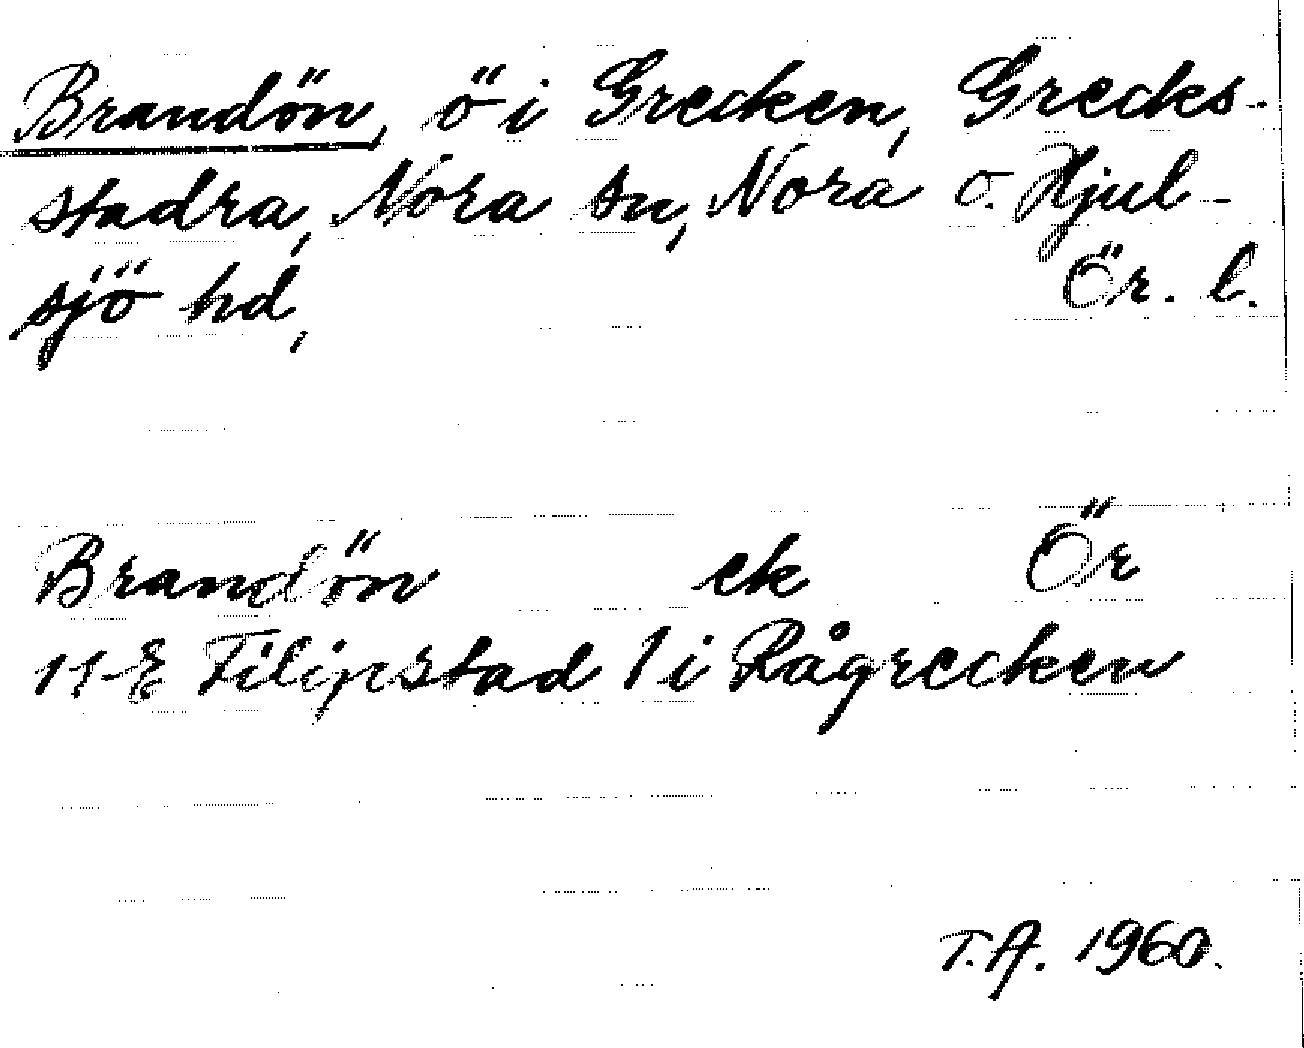 Brandön, ö i Grecken, Grecks-
stadra, Nora sn, Nora o. Hjul-
sjö hd, Ör. l.
Brandön ek Ör
11 E Filipstad 1 i Rågrecken
T.A. 1960.